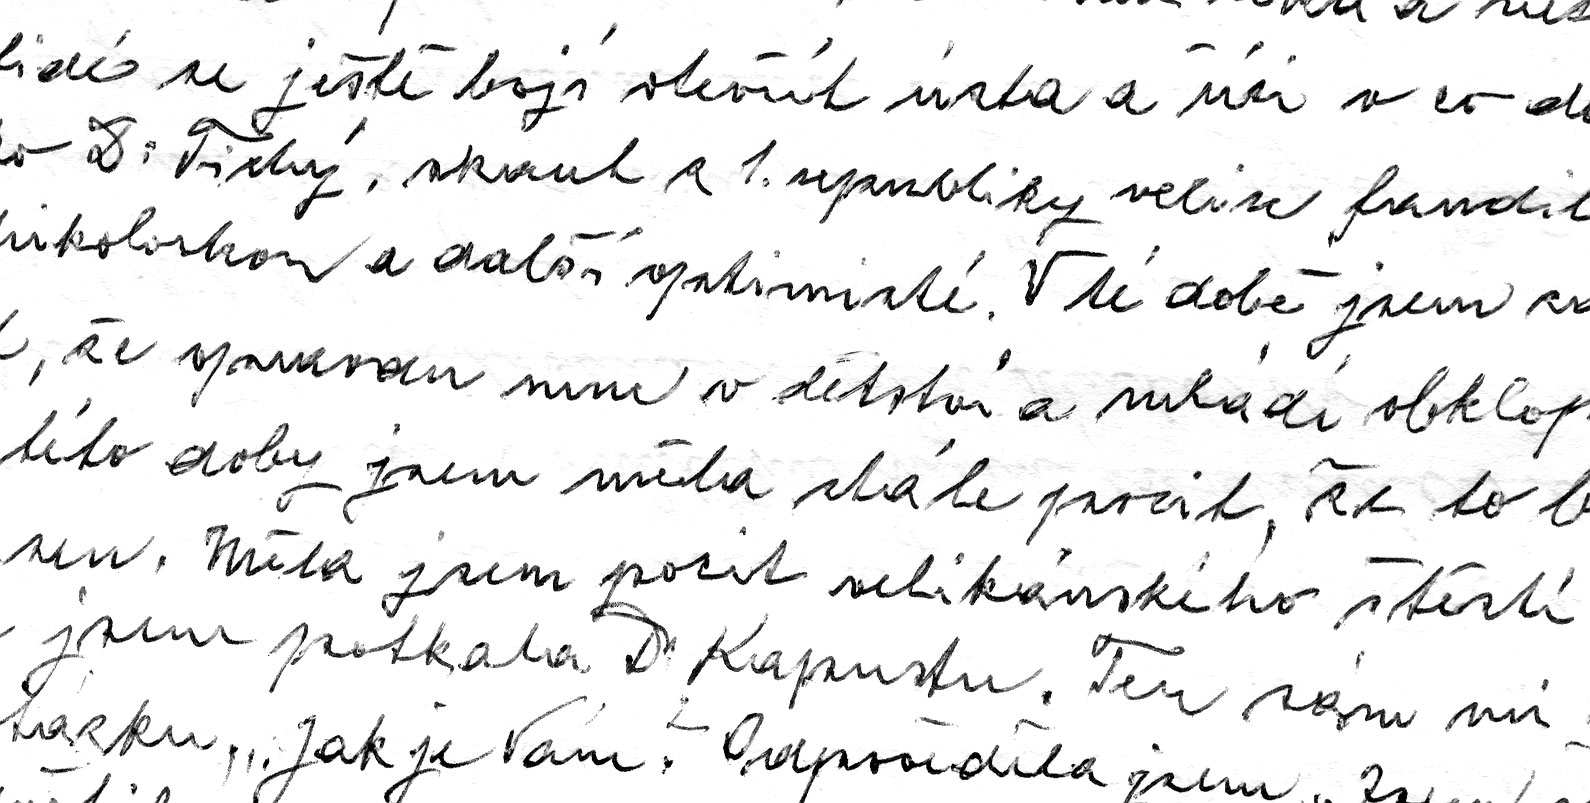 lidé se ještě bojí otevřít ústa a uši v co
Dr Tichý, skaut z 1. republiky velice fandil
trikolorkou a další optimisté. V té době jsem
, že opravdu mne v dětství a mládí
této doby jsem měla stále pocit, že to
sen. Měla jsem pocit velikánského štěstí
jsem potkala Dr Kapustu. Ten sám mi
otázku „Jak je Vám?" Odpověděla jsem „